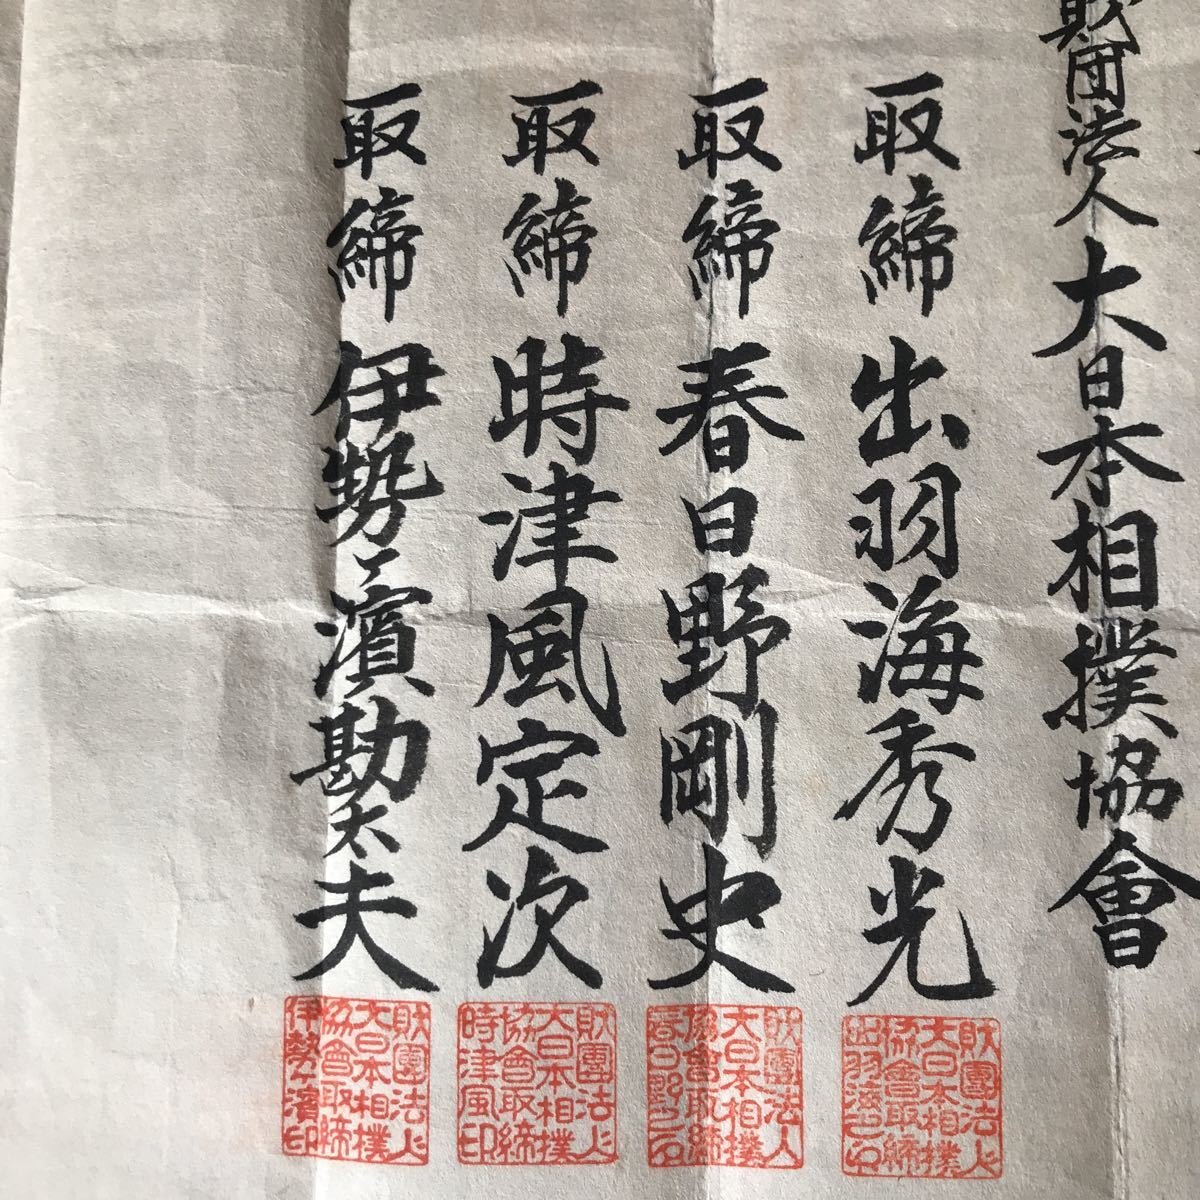 財団法人大日本相撲協會
取締 出羽海秀光
取締 春日野剛史
取締 時津風定次
取締 伊勢ヶ濱勘太夫
財團法人
大日本相撲
協會取締
財團法人
大日本相撲
協會取締
春日野之印
財團法人
大日本相撲
協會取締
時津風印
財團法人
大日本相撲
協會取締
伊勢ヶ濱印